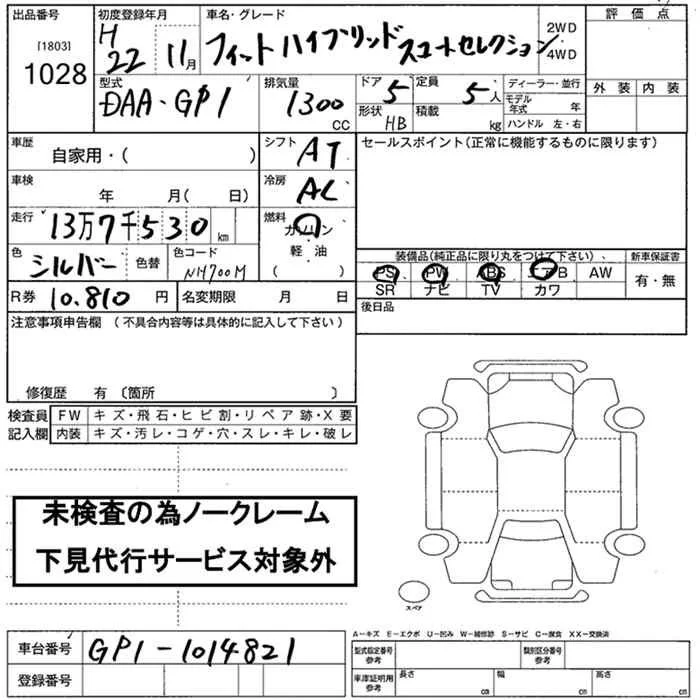 出品番号 初度登録年月 車名・グレード 評価点
[1803] H 22 11月 フィットハイブリッド スマートセレクション 2WD
1028 4WD
型式 排気量 ドア 定員 ディーラー・並行 外装 内装
DAA-GP1 1300 5 5人 モデル年式 年
CC 形状 HB 積載 kg ハンドル 左・右
車歴 シフト セールスポイント(正常に機能するものに限ります)
自家用・( ) AT
車検 冷房
年 月( 日) AC
走行 燃料
13万7千530km ガソリン
軽・油
( )
色 色替 色コード 装備品(純正品に限り丸をつけて下さい)、 新車保証書
シルバー NH700M PS PW ABS エアB AW 有・無
SR ナビ TV カワ
R券 10.810 円 名変期限 月 日 後日品
注意事項申告欄(不具合内容等は具体的に記入して下さい)
修復歴 有〔箇所 〕
検査員 FW キズ・飛石・ヒビ割・リペア跡・X要
記入欄 内装 キズ・汚レ・コゲ・穴・スレ・キレ・破レ
未検査の為ノークレーム
下見代行サービス対象外
スペア
A−キズ E−エクボ U−凹み W−補修跡 S−サビ C−腐食 XX−交換済
車台番号 GP1-1014821 型式指定番号 参考 類別区分番号 参考
登録番号 車庫証明用 参考 長さ cm 幅 cm 高さ cm